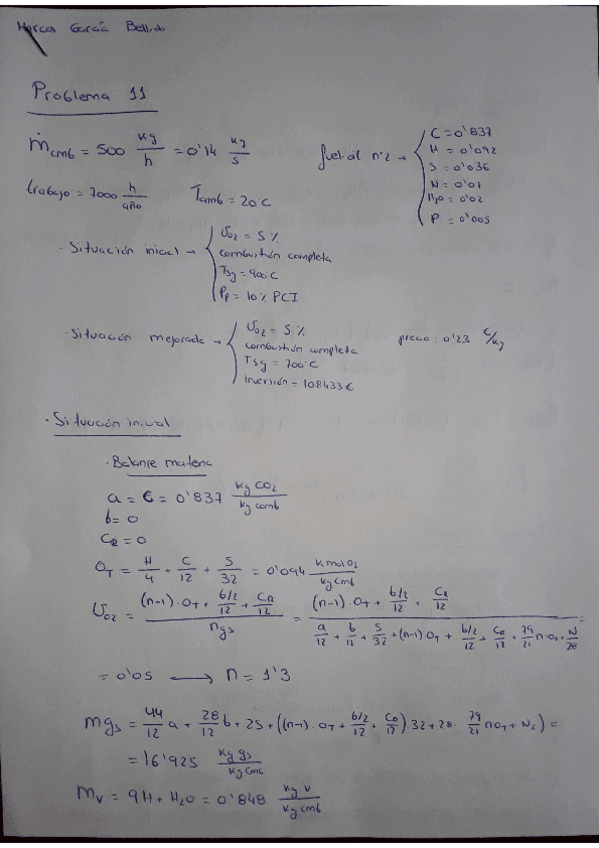 Marcos García Bellido
Problema 11
ṁcmb = 500 kg/h = 0'14 kg/s
fuel-oil nº2 → { C = 0'837
H = 0'092
S = 0'036
N = 0'01
H2O = 0'02
P = 0'005
trabajo = 7000 h/año Tamb = 20°C
· Situación inicial → { UO2 = 5 %
combustión completa
Tsg = 900°C
Pp = 10% PCI
· Situación mejorada → { UO2 = 5 %
combustión completa
Tsg = 700°C
inversión = 108433 €
precio: 0'23 €/kg
· Situación inicial
· Balance materia
a = C = 0'837 kg CO2/kg comb
b = 0
CR = 0
OT = H/4 + C/12 + S/32 = 0'094 kmol O2/kg cmb
UO2 = ((n-1)·OT + (b/2)/12 + CR/12)/ngs = ((n-1)·OT + (b/2)/12 + CR/12)/(a/12 + b/12 + S/32 + (n-1)OT + (b/2)/12 + CR/12 + 79/21 nOT + N/28) =
= 0'05 → n = 1'3
mgs = 44/12 a + 28/12 b + 2S + ((n-1)·OT + (b/2)/12 + CR/12) 32 + 28· 79/21 nOT + N2) =
= 16'925 kg gs/kg cmb
mv = 9H + H2O = 0'848 kg v/kg cmb